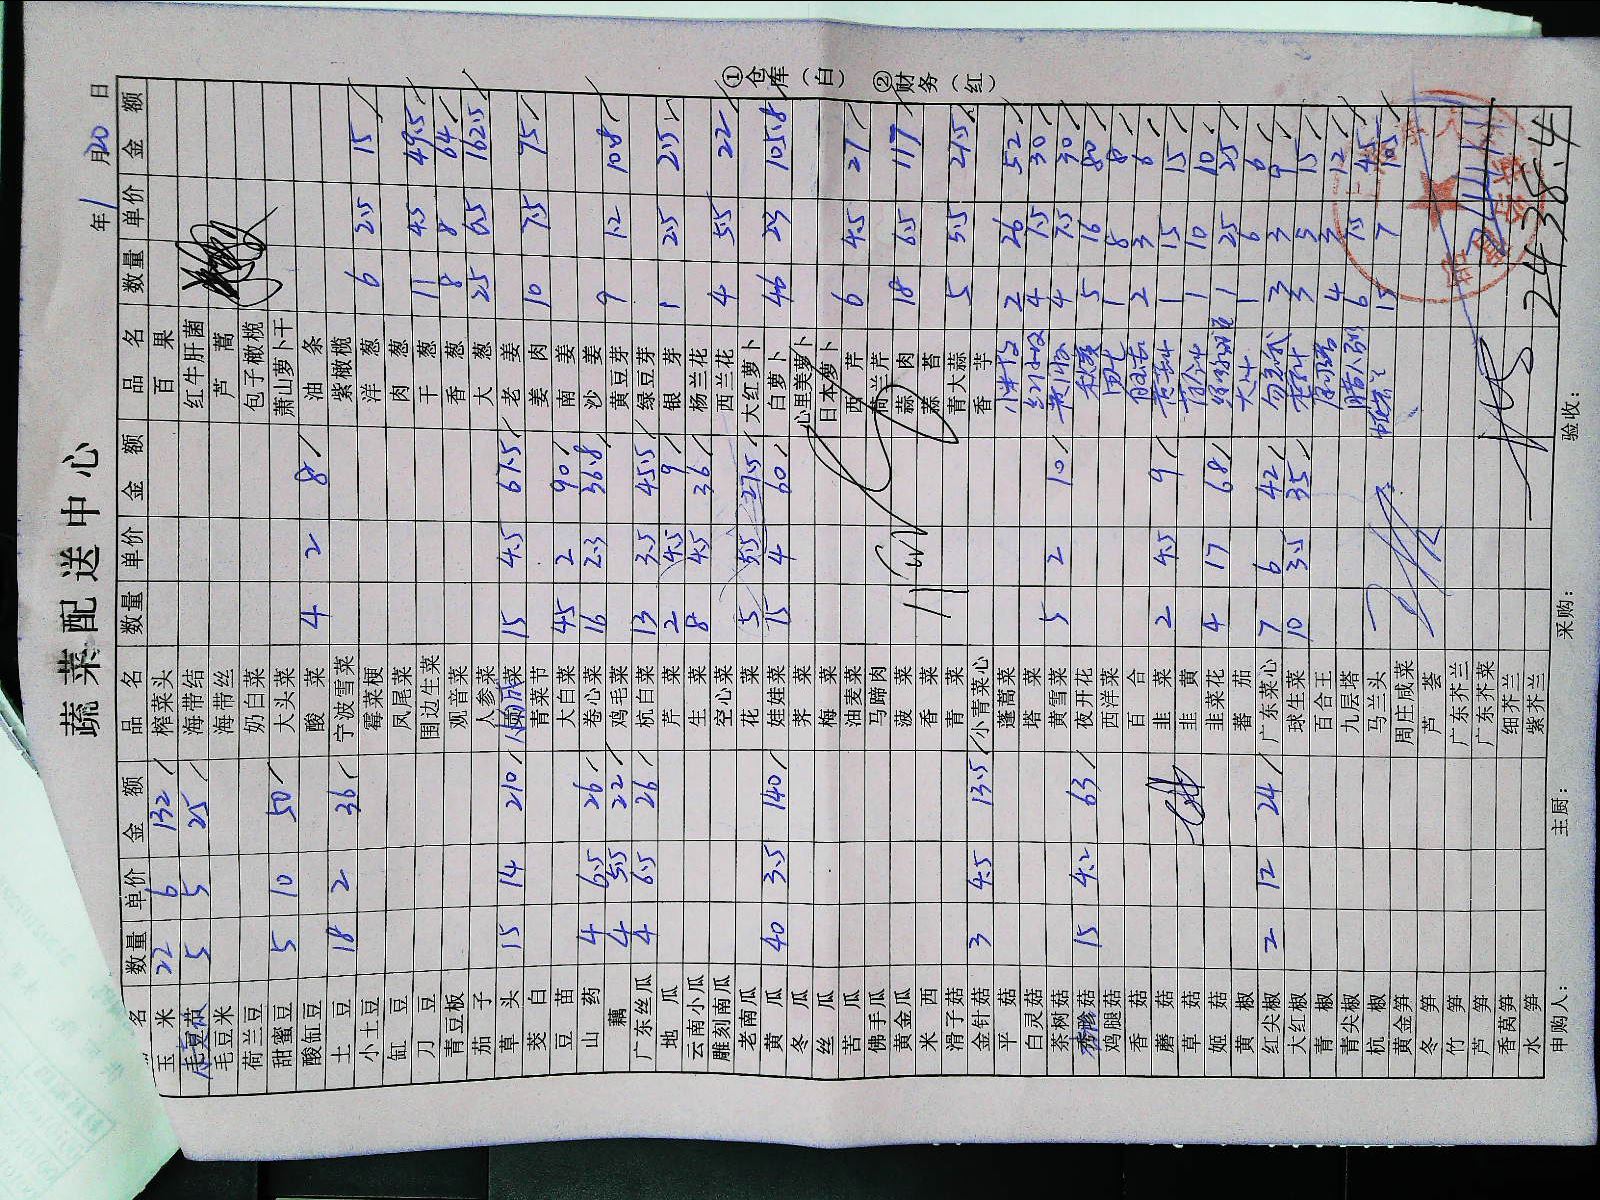 蔬菜配送中心
年 1 月 20 日
品名 数量 单价 金额 品名 数量 单价 金额 品名 数量 单价 金额
玉米 22 6 132 榨菜头 百果
5 5 25 海带结 红牛肝菌
毛豆米 海带丝 芦蒿
荷兰豆 奶白菜 包子橄榄
甜蜜豆 5 10 50 大头菜 萧山萝卜干
酸缸豆 酸菜 4 2 8 油条
土豆 18 2 36 宁波雪菜 紫橄榄
小土豆 霉菜梗 洋葱 6 2.5 15
缸豆 凤尾菜 肉葱
刀豆 围边生菜 干葱 11 4.5 49.5
青豆板 观音菜 香葱 8 8 64
茄子 人参菜 大葱 25 6.5 162.5
草头 15 14 210 菜 15 4.5 67.5 老姜
茭白 青菜节 姜肉 10 7.5 75
豆苗 大白菜 45 2 90 南姜
山药 4 6.5 26 卷心菜 16 2.3 36.8 沙姜
藕 4 5.5 22 鸡毛菜 黄豆芽 9 1.2 10.8
广东丝瓜 4 6.5 26 杭白菜 13 3.5 45.5 绿豆芽
地瓜 芹菜 2 4.5 9 银芽 1 2.5 2.5
云南小瓜 生菜 8 4.5 36 杨兰花
雕刻南瓜 空心菜 西兰花 4 5.5 22
老南瓜 花菜 5 5.5 27.5 大红萝卜
黄瓜 40 3.5 140 娃娃菜 15 4 60 白萝卜 46 2.3 105.8
冬瓜 荠菜 心里美萝卜
丝瓜 梅菜 日本萝卜
苦瓜 油麦菜 西芹 6 4.5 27
佛手瓜 马蹄肉 荷兰芹
黄金瓜 菠菜 蒜肉 18 6.5 117
米西 香菜 蒜苔
滑子菇 青菜 青大蒜 5 5.5 27.5
金针菇 3 4.5 13.5 小青菜心 香芋
平菇 蓬蒿菜 2 26 52
白灵菇 塔菜 4 7.5 30
茶树菇 黄雪菜 5 2 10 4 7.5 30
菇 15 4.2 63 夜开花 5 16 80
鸡腿菇 西洋菜 1 8 8
香菇 百合 2 3 6
蘑菇 韭菜 2 4.5 9 1 15 15
草菇 韭黄 1 10 10
姬菇 韭菜花 4 17 68 1 25 25
黄椒 蕃茄 1 6 6
红尖椒 2 12 24 广东菜心 7 6 42 3 3 9
大红椒 球生菜 10 3.5 35 3 5 15
青椒 百合王 4 3 12
青尖椒 九层塔 6 7.5 45
杭椒 马兰头 15 7 105
黄金笋 周庄咸菜
冬笋 芦荟
竹笋 广东芥兰
芦笋 广东芥菜
香莴笋 细芥兰
水笋 紫芥兰
2438.4
申购人： 主厨： 采购： 验收：
①仓库（白） ②财务（红）